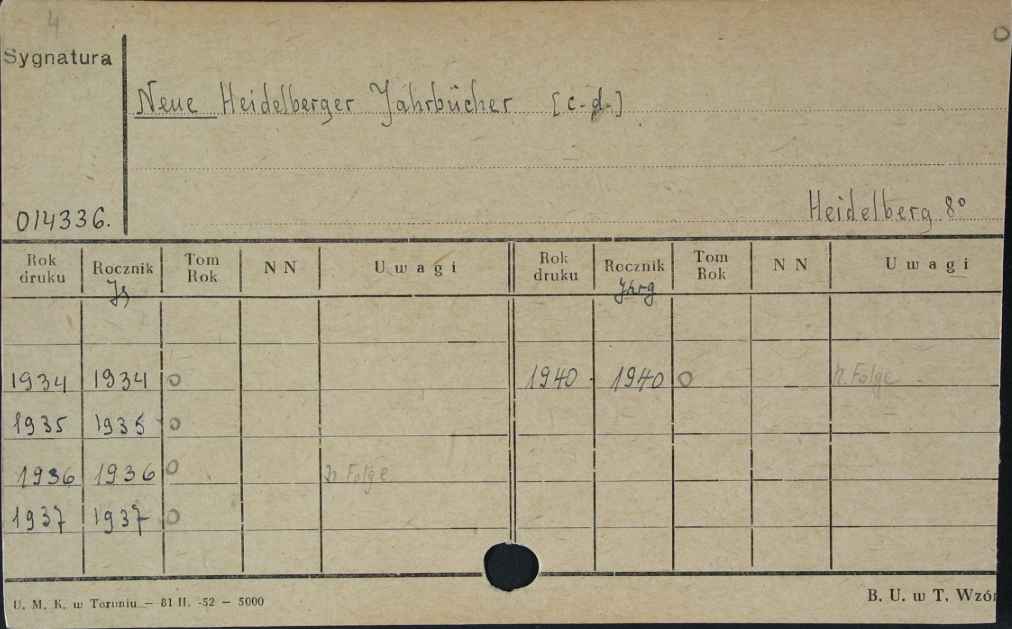 4
Sygnatura
Neue Heidelberger Jahrbücher [c.d.]
Heidelberg 8°
014336.
Rok druku Rocznik Tom Rok N N Uwagi Rok druku Rocznik Tom Rok N N Uwagi
Jg Jhrg
1934 1934 O 1940 1940 O n. Folge
1935 1935 O
1936 1936 O n Folge
1937 1937 O
U. M. K. w Toruniu – 81 II. -52 – 5000
B. U. w T. Wzór